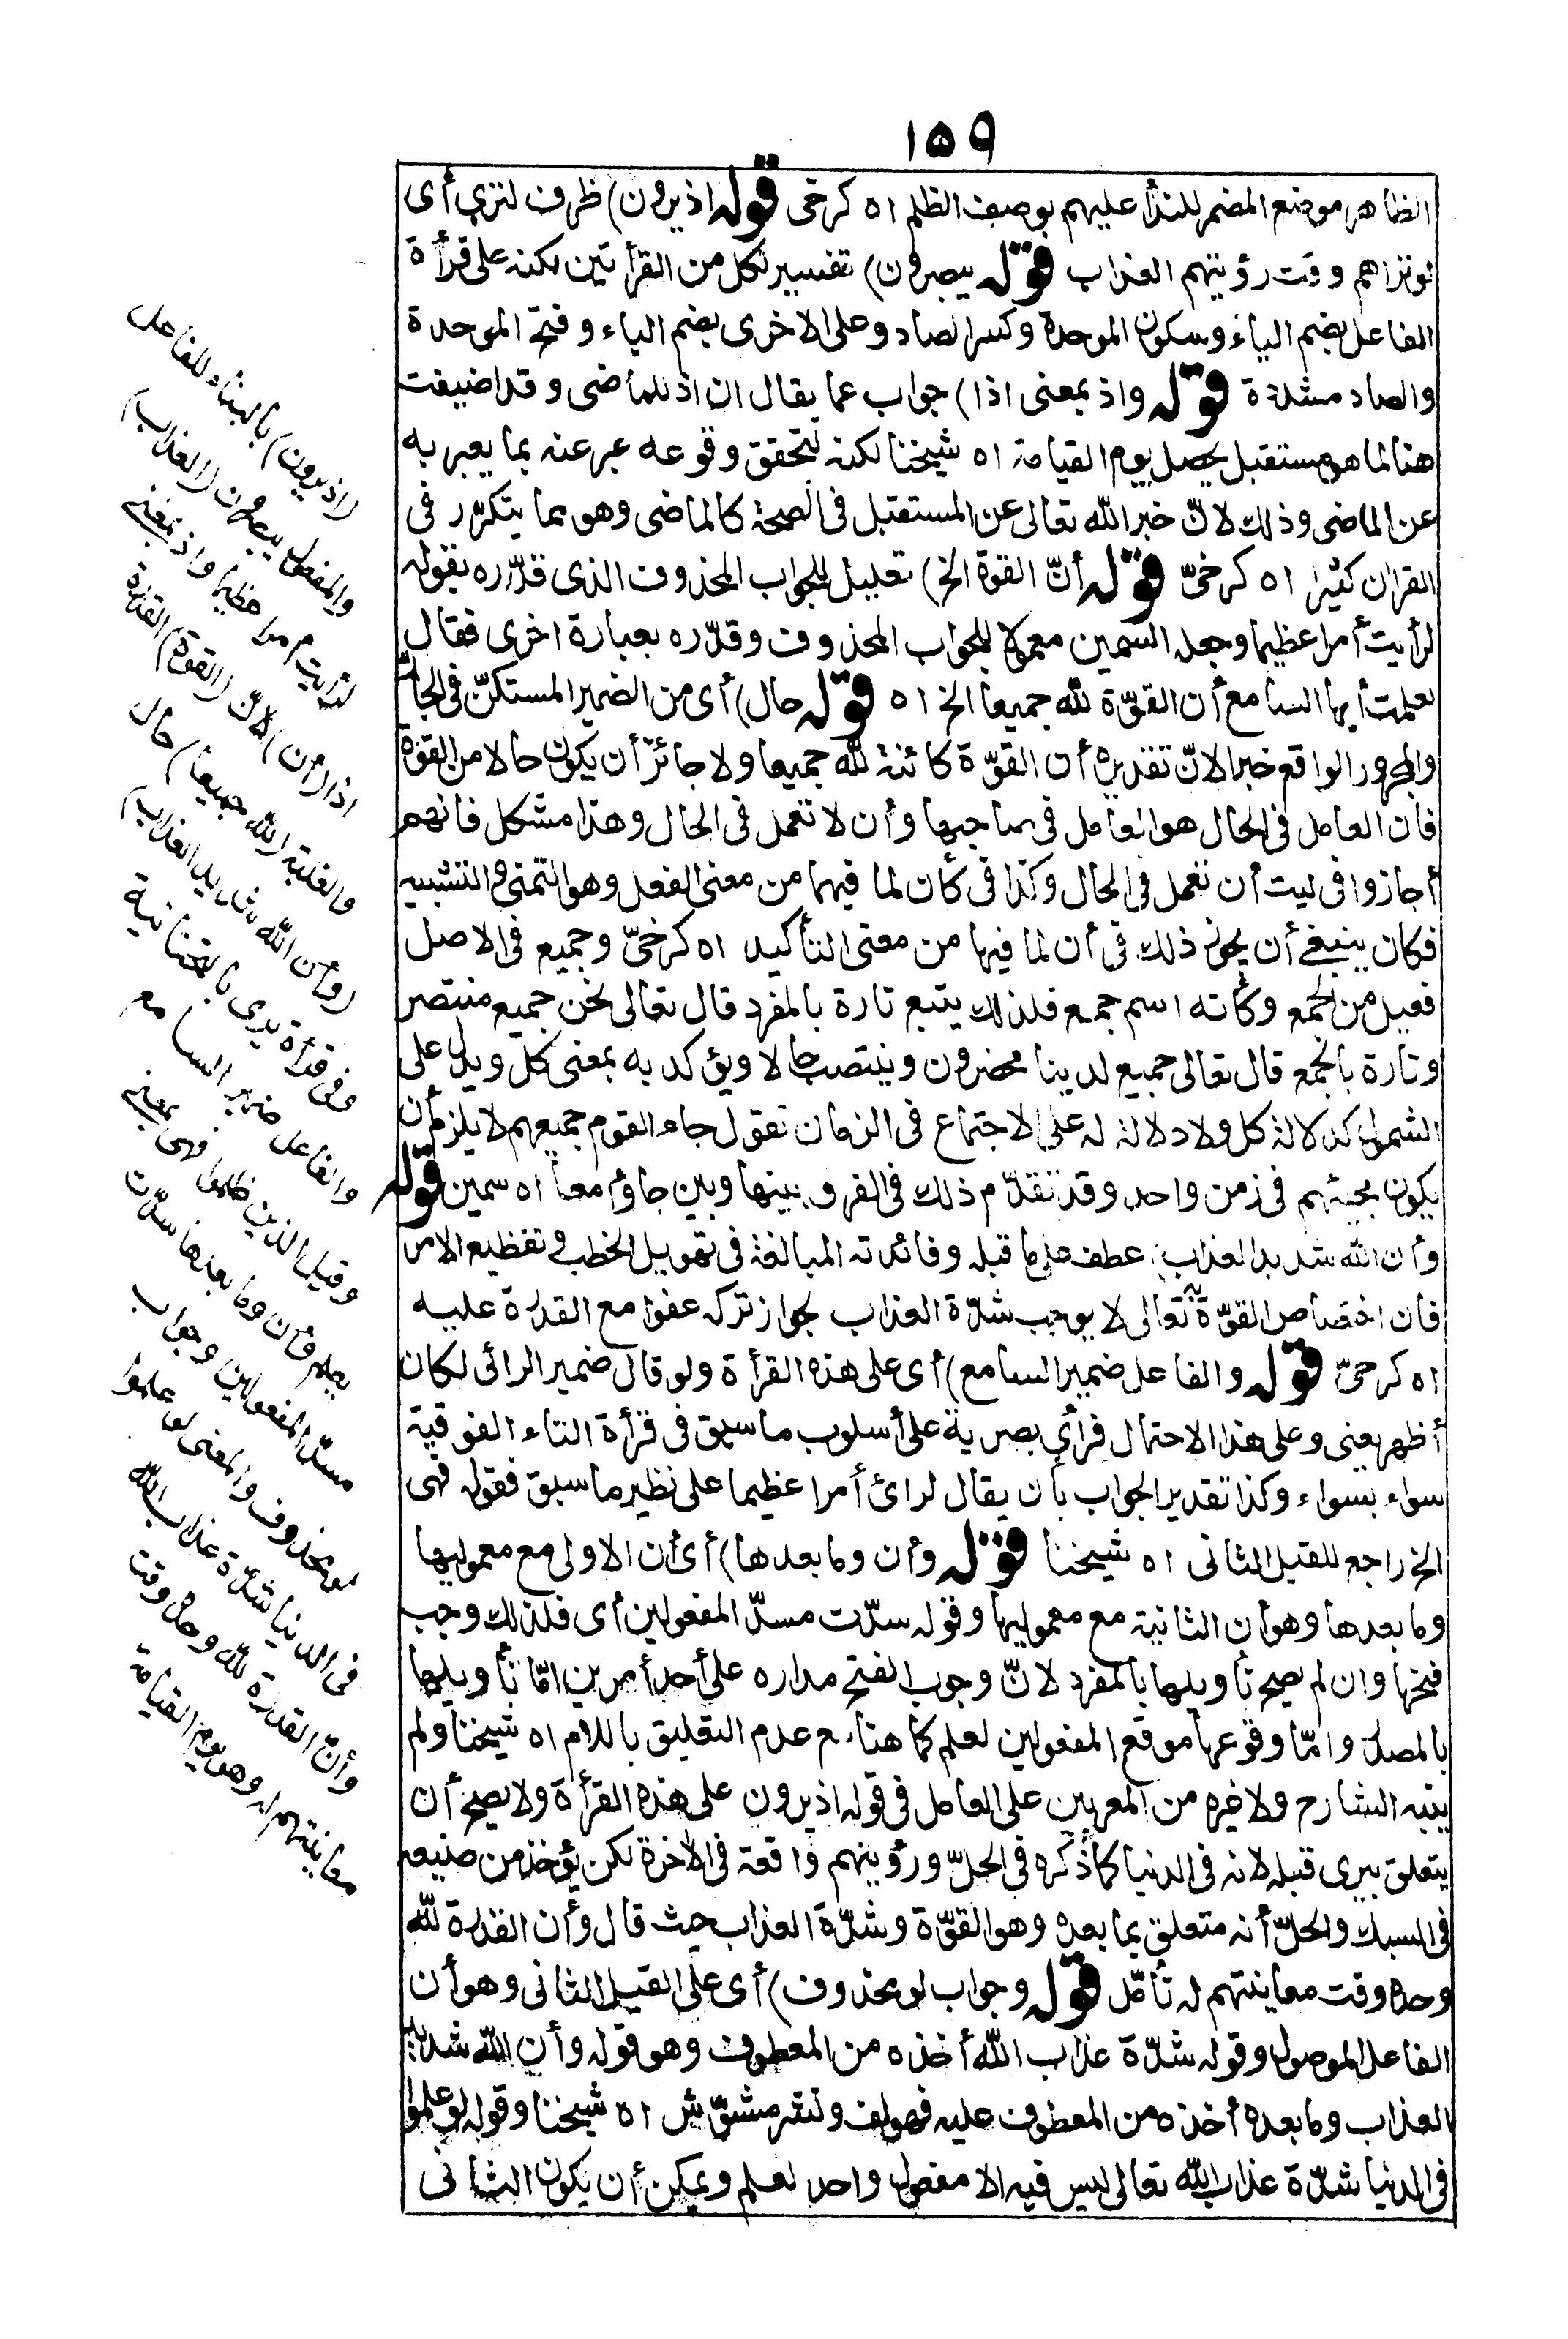 ١٥٩
الظاهر موضع المضمر للندأ عليهم بوصف الظلم اه كرخى قوله اذ يرون) ظرف لترى أى
لو تراهم وقت رؤيتهم العذاب قوله يبصرون) تفسير لكل من القرأتين لكنه على قرأة
الفاعل بضم الياء وسكون الموحدة وكسر الصاد وعلى الاخرى بضم الياء وفتح الموحدة
والصاد مشددة قوله واذ بمعنى اذا) جواب عما يقال ان اذ للماضى وقد اضيفت
هنا لما هو مستقبل يحصل يوم القيامة اه شيخنا لكنه لتحقق وقوعه عبر عنه بما يعبر به
عن الماضى وذلك لانّ خبر الله تعالى عن المستقبل فى الصحة كالماضى وهو مما يتكرّر فى
القران كثيرا اه كرخىّ قوله أنّ القوة الخ) تعليل للجواب المحذوف الذى قدّره بقوله
لرأيت أمرا عظيما وجعله السمين معمولا للجواب المحذوف وقدّره بعبارة اخرى فقال
لعلمت أيها السامع أن القوّة لله جميعا الخ اه قوله حال) أى من الضمير المستكنّ فى الجارّ
والمجرور الواقع خبرا لانّ تقديره أن القوّة كائنة لله جميعا ولا جائز أن يكون حالا من القوّة
فان العامل فى الحال هو العامل فى صاحبها وأن لا تعمل فى الحال وهذا مشكل فانهم
أجازوا فى ليت أن تعمل فى الحال وكذا فى كأن لما فيهما من معنى الفعل وهو التمنى والتشبيه
فكان ينبغى أن يجوز ذلك فى أن لما فيها من معنى التأكيد اه كرخىّ وجميع فى الاصل
فعيل من الجمع وكأنه اسم جمع فلذلك يتبع تارة بالمفرد قال تعالى نحن جميع منتصر
وتارة بالجمع قال تعالى جميع لدينا محضرون وينتصب حالا ويؤكد به بمعنى كلّ ويدل على
الشمول كدلالة كل ولا دلالة له على الاجتماع فى الزمان تقول جاء القوم جميعهم لا يلزم أن
يكون مجيئهم فى زمن واحد وقد تقدّم ذلك فى الفرق بينها وبين جاؤا معا اه سمين قوله
وأن الله شديد العذاب) عطف على ما قبله وفائدته المبالغة فى تهويل الخطب وتفظيع الامر
فان اختصاص القوّة به تعالى لا يوجب شدّة العذاب لجواز تركه عفوا مع القدرة عليه
اه كرخىّ قوله والفاعل ضمير السامع) أى على هذه القرأة ولو قال ضمير الرائى لكان
أظهر يعنى وعلى هذا الاحتمال فرأى بصرية على أسلوب ما سبق فى قرأة التاء الفوقية
سواء بسواء وكذا تقدير الجواب بأن يقال لرائ أمرا عظيما على نظير ما سبق فقوله فهى
الخ راجع للقيل الثانى اه شيخنا قوله وأن وما بعدها) أى أن الاولى مع معموليها
وما بعدها وهو أن الثانية مع معموليها وقوله سدّت مسدّ المفعولين أى فلذلك وجب
فتحها وان لم يصح تأويلها بالمفرد لانّ وجوب الفتح مداره على أحد أمرين امّا تأويلها
بالمصدر وامّا وقوعها موقع المفعولين لعلم كما هنا مع عدم التعليق باللام اه شيخنا ولم
ينبه الشارح ولا غيره من المعربين على العامل فى قوله اذ يرون على هذه القرأة ولا يصح أن
يتعلق بيرى قبله لانه فى الدنيا كما ذكره فى الحلّ ورؤيتهم واقعة فى الاخرة لكن يؤخذ من صنيعه
فى السبك والحلّ أنه متعلق بما بعده وهو القوّة وشدّة العذاب حيث قال وأن القدرة لله
وحده وقت معاينتهم له تأمّل قوله وجواب لو محذوف) أى على القيل الثانى وهو أن
الفاعل الموصول وقوله شدّة عذاب الله أخذه من المعطوف وهو قوله وأن الله شديد
العذاب وما بعده أخذه من المعطوف عليه فهو لف ونشر مشوّش اه شيخنا وقوله لو علموا
فى الدنيا شدّة عذاب الله تعالى ليس فيه الا مفعول واحد لعلم ويمكن أن يكون الثانى
(اذ يرون) بالبناء للفاعل
والمفعول يبصرون (العذاب)
لرأيت أمرا عظيما واذ بمعنى
اذا (أن) لانّ (القوة) القدرة
والغلبة (لله جميعا) حال
(وأن الله شديد العذاب)
وفى قرأة يرى بالتحتانية
والفاعل ضمير السامع
وقيل الذين ظلموا فهى بمعنى
يعلم وأن وما بعدها سدّت
مسدّ المفعولين وجواب
لو محذوف والمعنى لو علموا
فى الدنيا شدّة عذاب الله
وأنّ القدرة لله وحده وقت
معاينتهم له وهو يوم القيامة